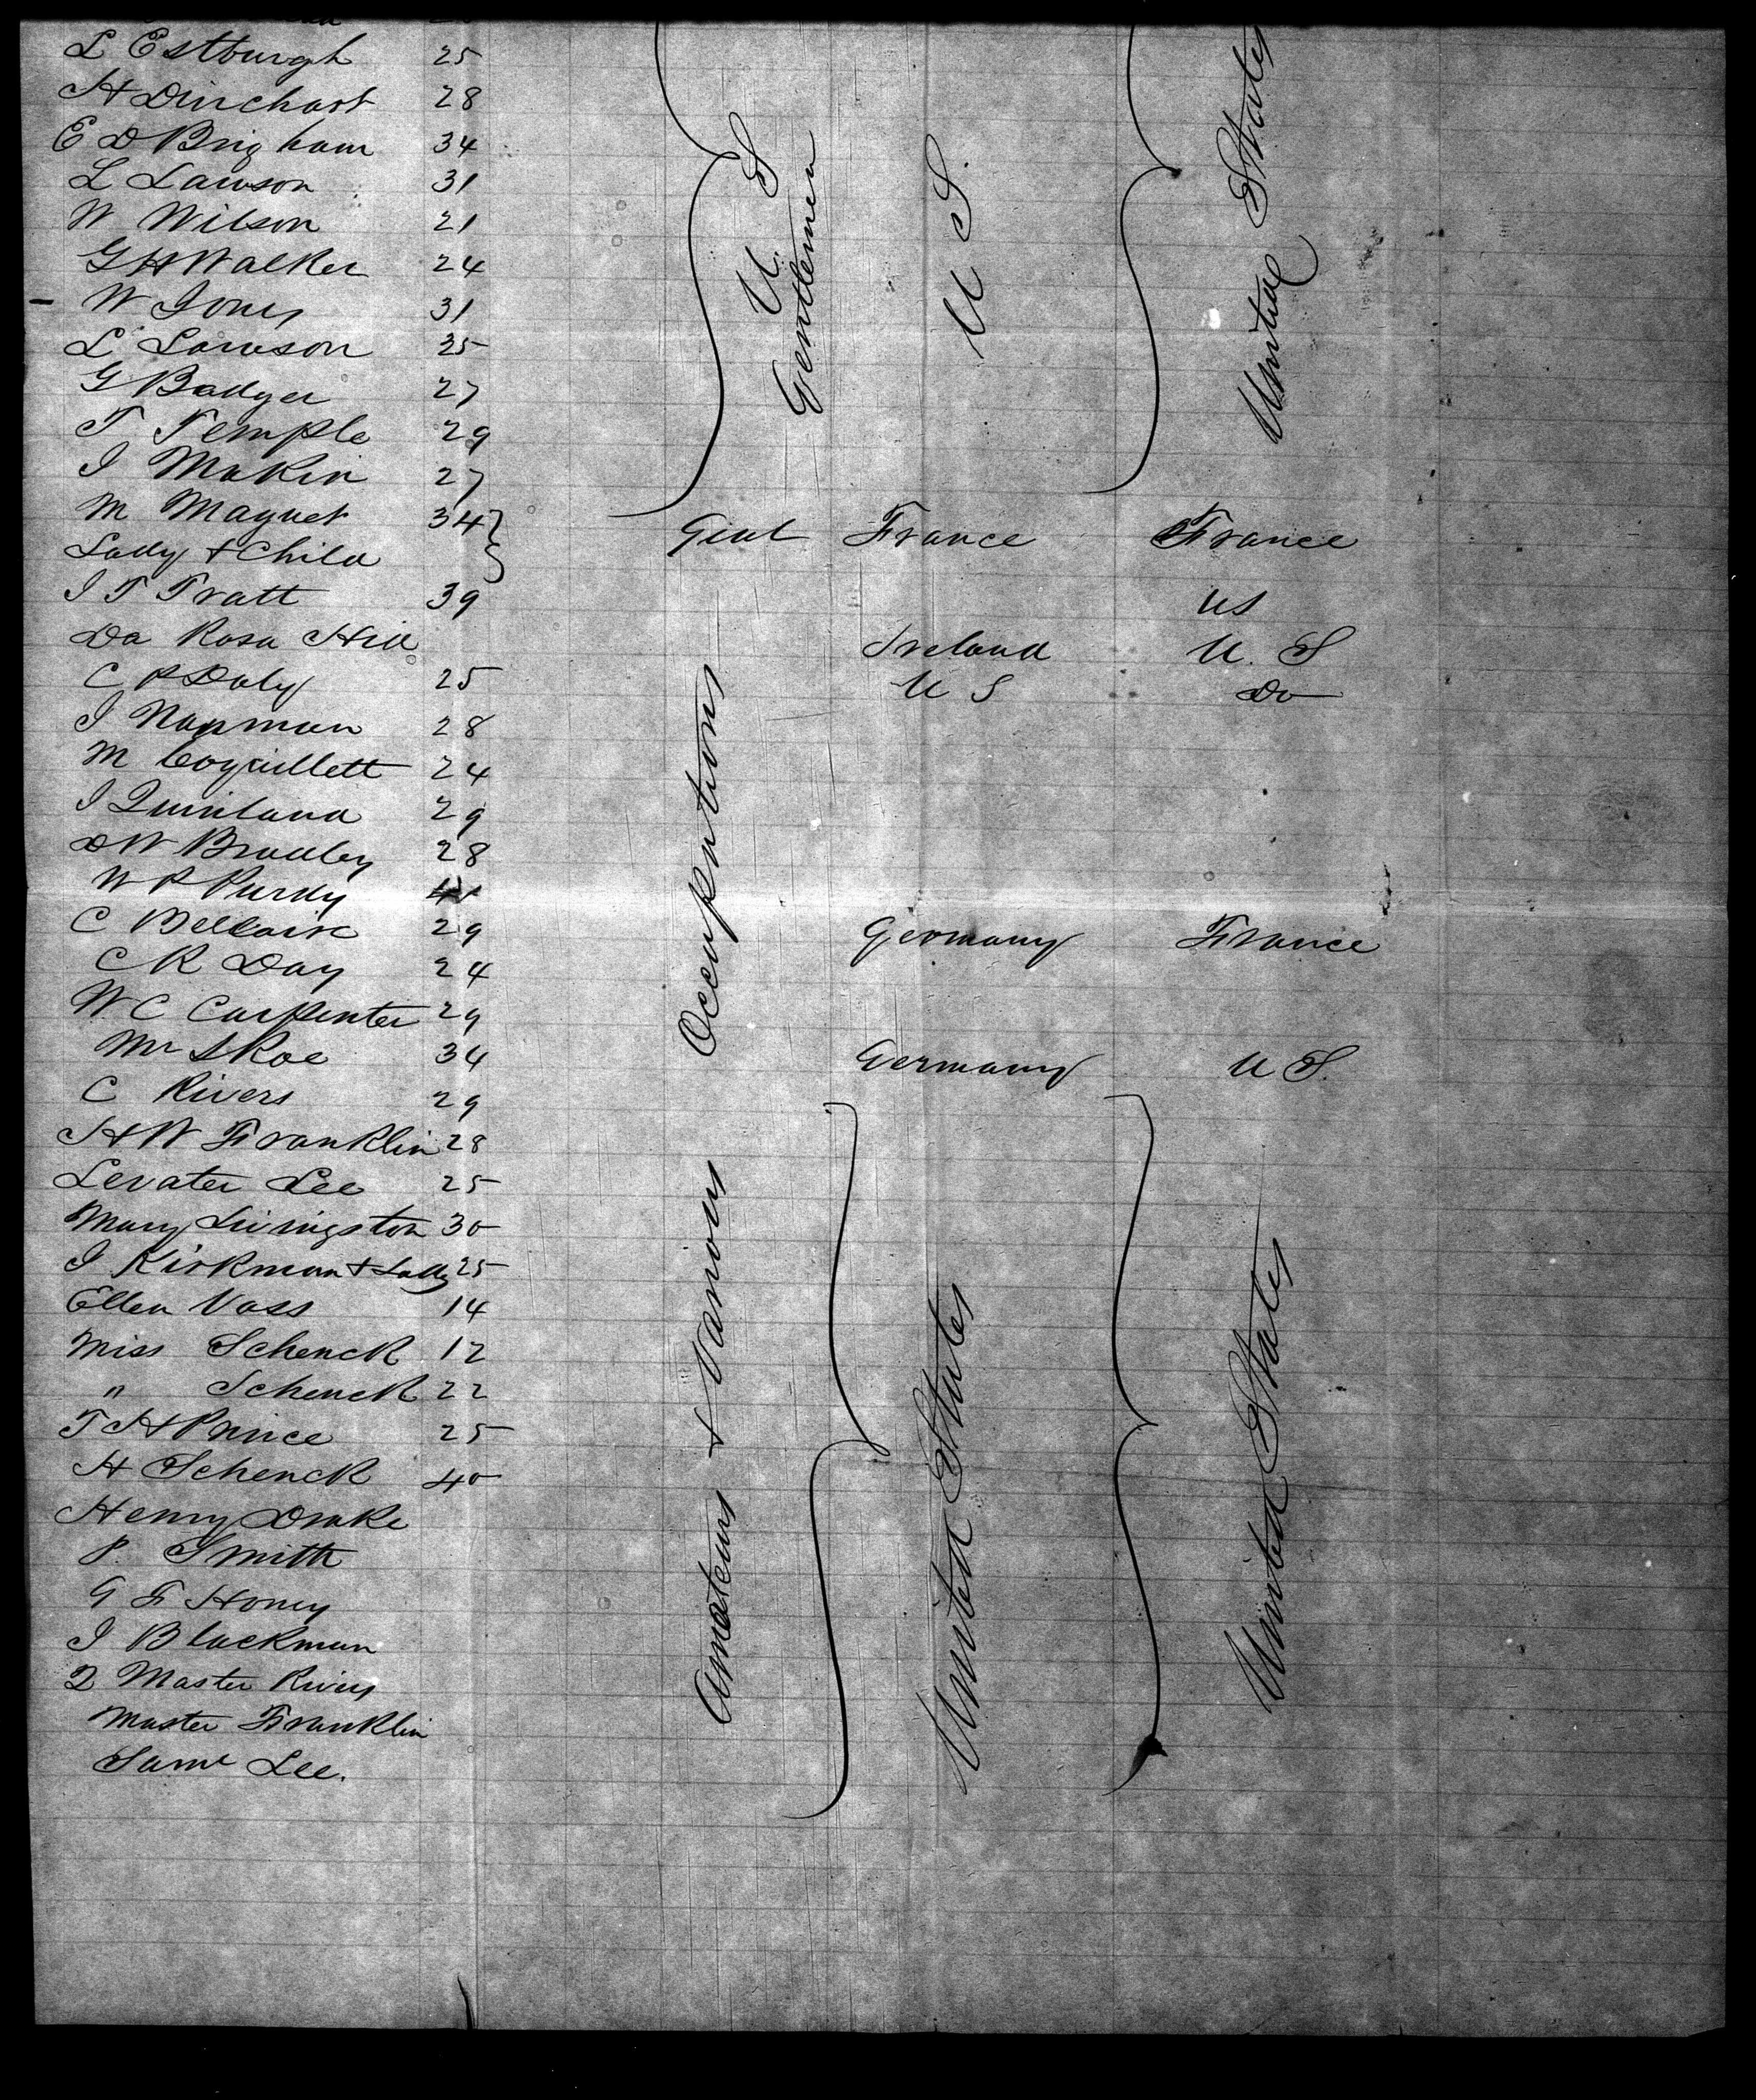 L Estburgh 25
H Dinchart 28
E D Brigham 34
L Lawson 31
W Wilson 21
G H Walker 24
W Jones 31
L Lawson 25
G Badger 27
T Temple 29
J Makin 27
U. S Gentlemen
U S.
United States
M Magnet 34 Gent France France
Lady & Child
J T Tratt 39 US
Da Rosa Hill Ireland U. S
C P Daly 25 U S Do
J Napman 28
M Coquillett 24
J Quinland 29
D W Bradley 28
W P Purdy
C Bellair 29 Germany France
C R Day 24
W C Carpenter 29
Mr S Roe 34 Germany U S.
C Rivers 29
H W Franklin 28
Levater Lee 25
Mary Livingston 30
J Kirkman & Lady 25
Ellen Vass 14
Miss Schenck 12
" Schenck 22
T H Prince 25
H Schenck 40
Henry Drake
P. Smith
G F Honey
J Blackman
2 Master Rivers
Master Franklin
Saml Lee.
Amateurs & Various Occupations
United States
United States